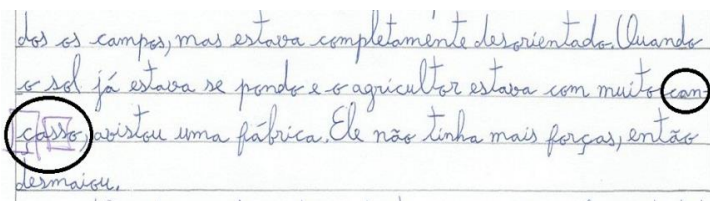 dos os campos, mas estava completamente desorientado. Quando
o sol já estava se pondo e o agricultor estava com muito can-
çasso, avistou uma fábrica. Ele não tinha mais forças, então
desmaiou.